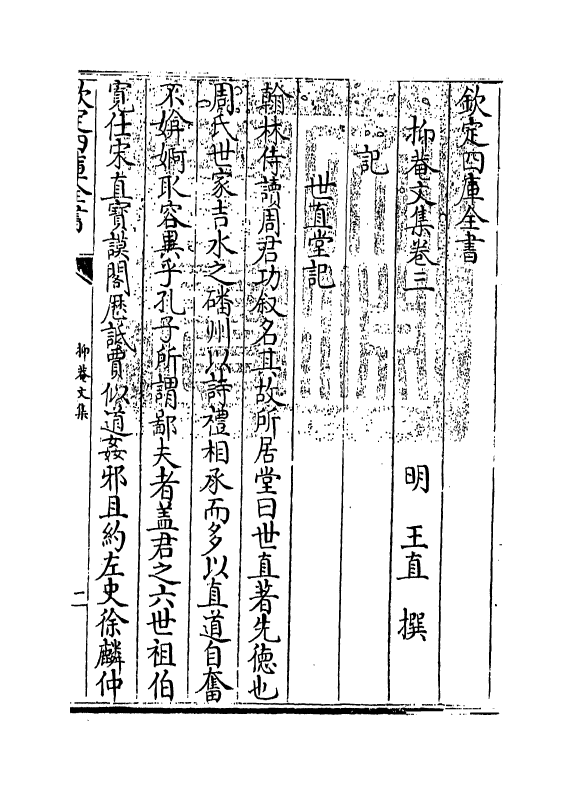 欽定四庫全書
抑菴文集卷三
明 王直 撰
記
世直堂記
翰林侍讀周君功叙名其故所居堂曰世直著先德也
周氏世家吉水之磻州以詩禮相承而多以直道自奮
不媕婀取容異乎孔子所謂鄙夫者盖君之六世祖伯
寛仕宋直寳謨閣歴詆賈似道姦邪且約左史徐麟仲
欽定四庫全書
抑菴文集